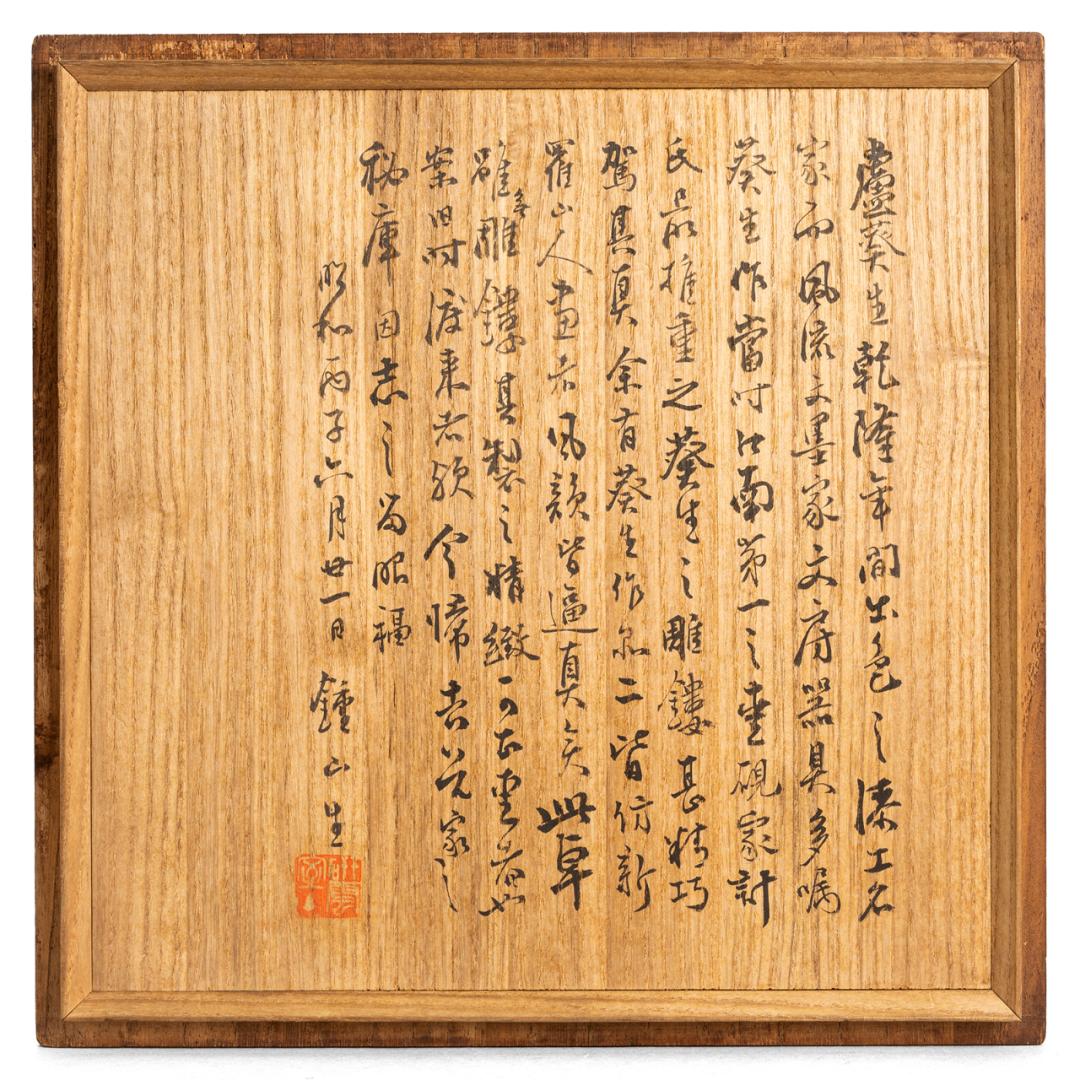 盧葵生乾隆年間出色之漆工名
家而風流文墨家文房器具多嘱
葵生作當時江南第一之畫硯家計
氏最推重之葵生之雕鏤甚精巧
駕其真余有葵生作品二皆仿新
羅山人画者風韻皆逼真矣此卓
雖無雕鏤其製之精緻可至重者也
案旧時渡来者歟今帰吉兄家之
秘庫因志之為眼福
昭和丙子六月廿一日 鐘山生